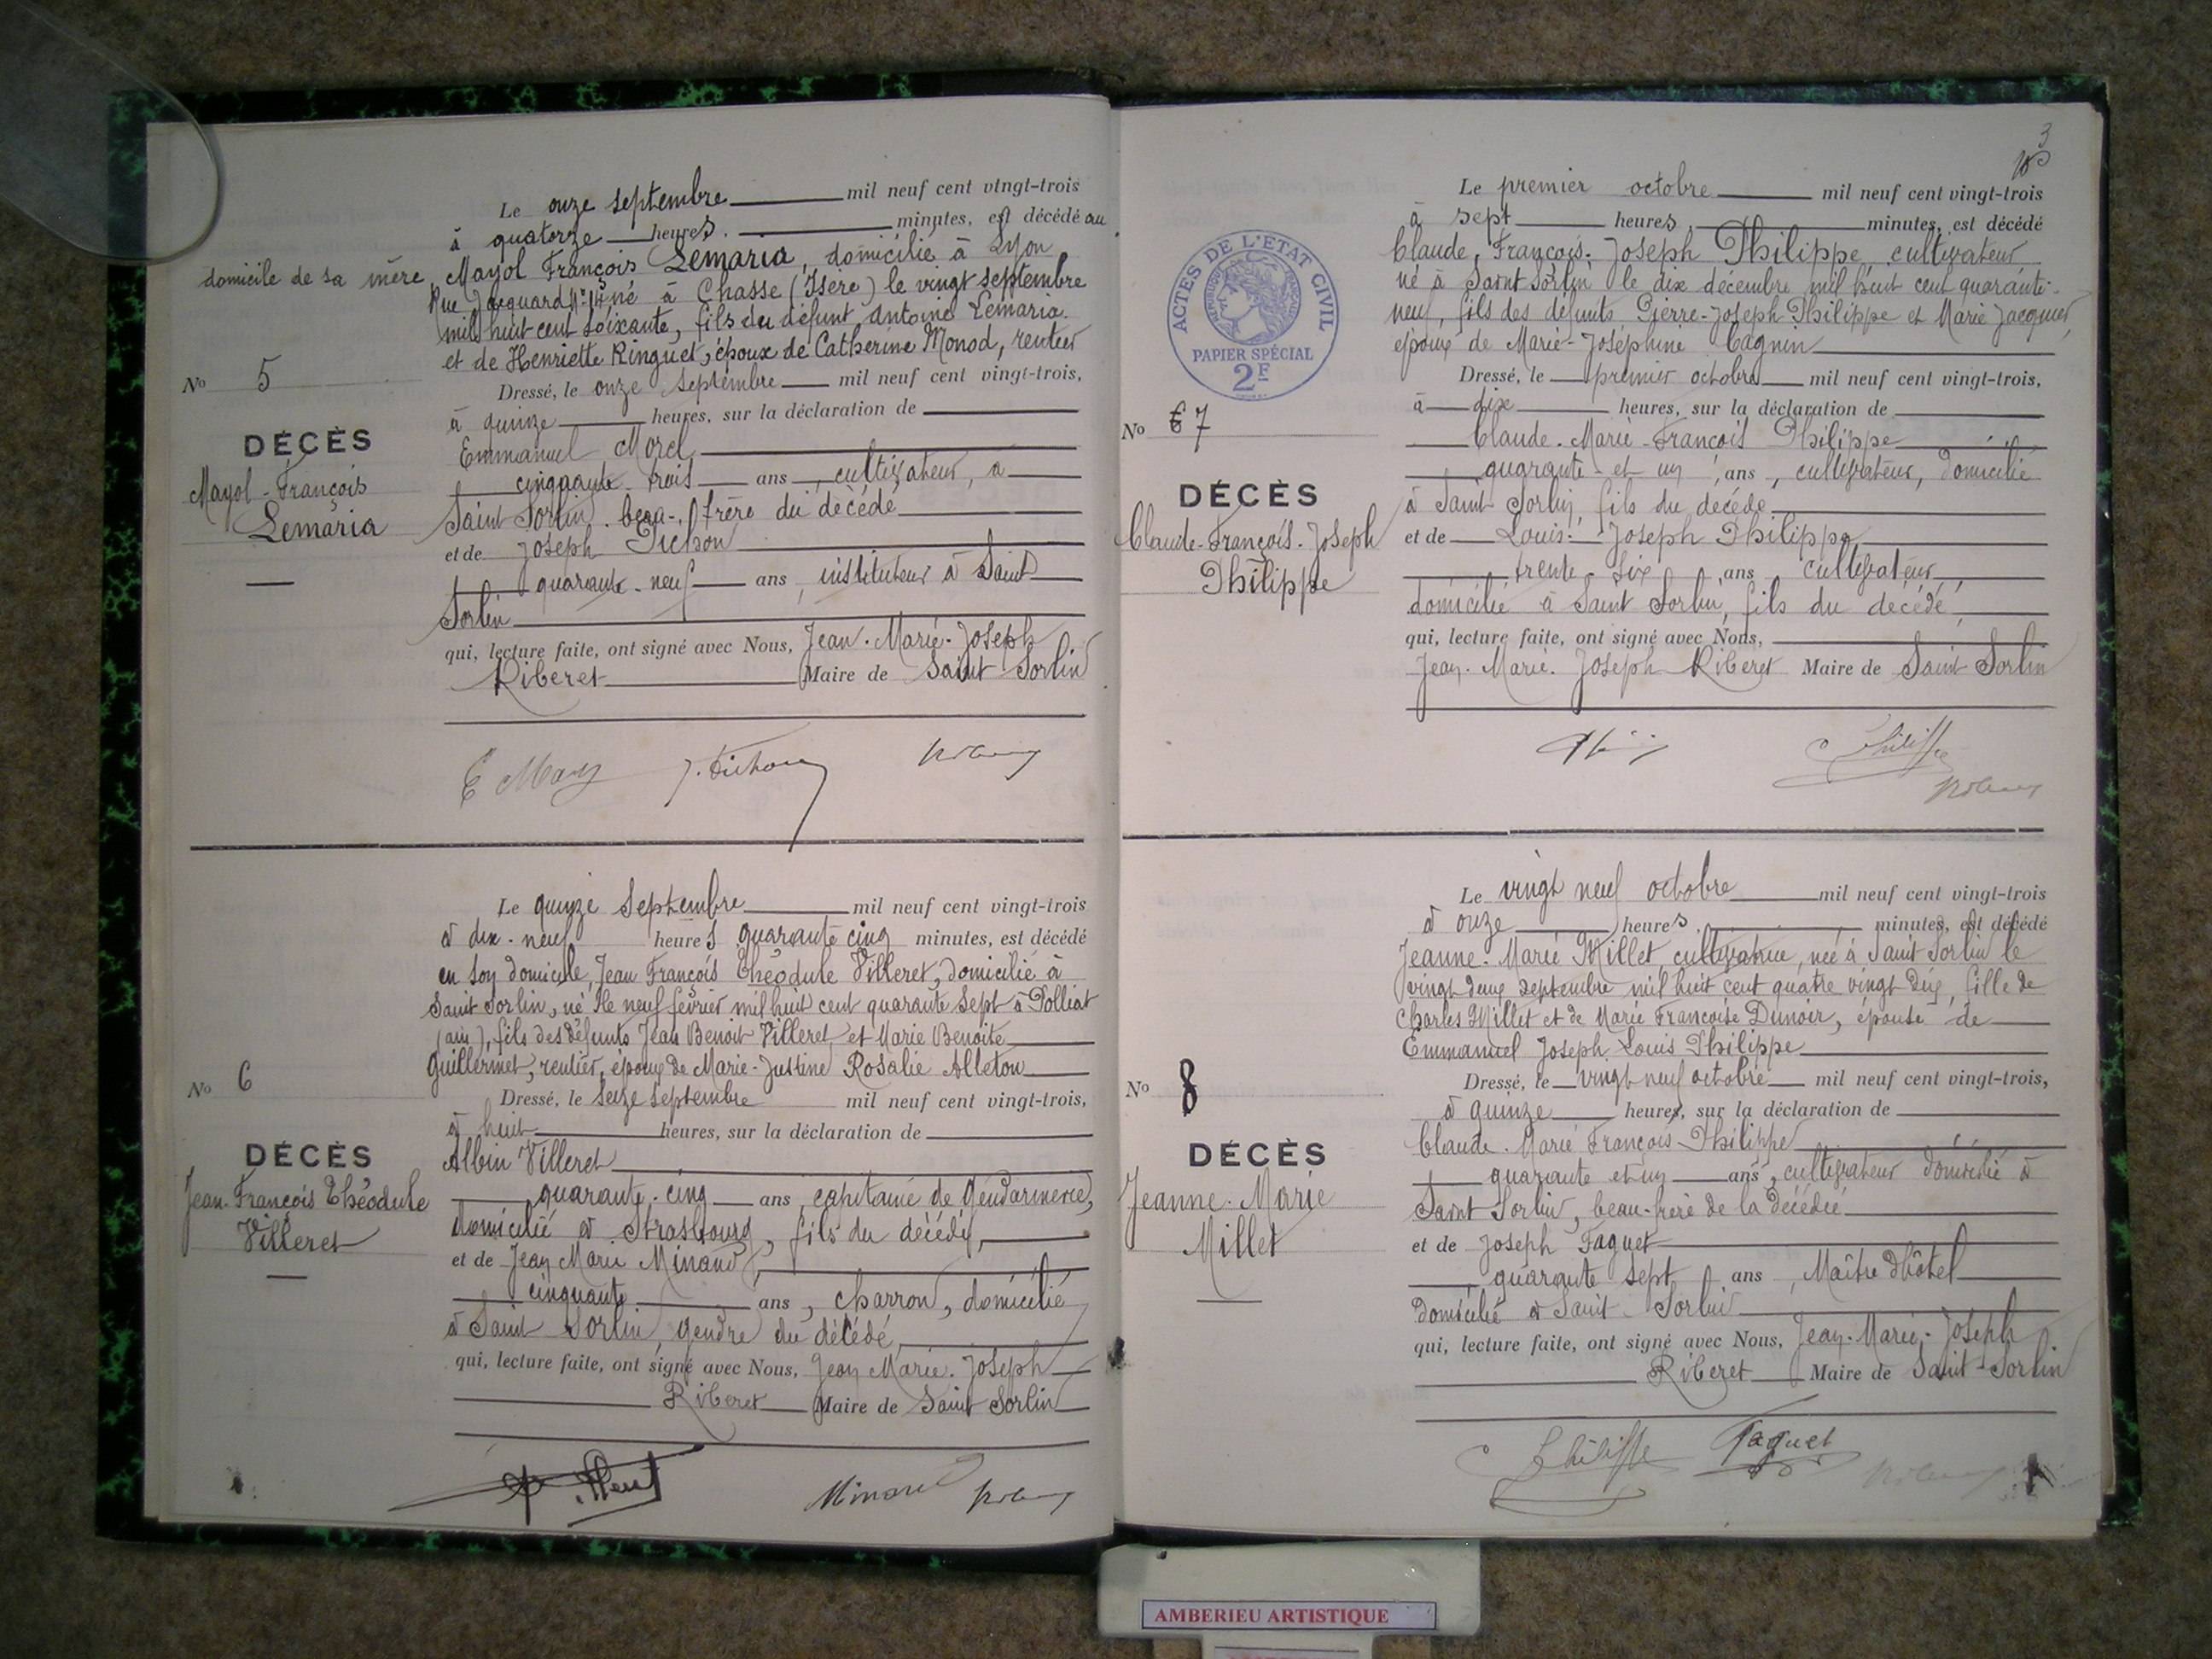 Le onze septembre mil neuf cent vingt-trois
à quatorze heures. minutes, est décédé au
domicile de sa mère, Mayol François Lemaria, domicilié à Lyon
Rue Jacquard N° 14 né à Chasse (Isère) le vingt septembre
mil huit cent soixante, fils du défunt Antoine Lemaria
et de Henriette Ringuet, époux de Catherine Monod, rentier
Dressé, le onze septembre mil neuf cent vingt-trois,
à quinze heures, sur la déclaration de
Emmanuel Morel
cinquante trois ans, cultivateur, à
Saint Sorlin, beau-frère du décédé
et de Joseph Pichon
quarante-neuf ans, instituteur à Saint
Sorlin
qui, lecture faite, ont signé avec Nous, Jean-Marie-Joseph
Riberet Maire de Saint Sorlin
No 5
DÉCÈS
Mayol-François
Lemaria
J. Pichon
Le quinze septembre mil neuf cent vingt-trois
à dix-neuf heures quarante cinq minutes, est décédé
en son domicile, Jean François Théodule Villeret, domicilié à
Saint Sorlin, né le neuf février mil huit cent quarante sept à Polliat
(ain), fils des défunts Jean Benoit Villeret et Marie Benoite
Guillermet, rentier, époux de Marie-Justine Rosalie Alleton
Dressé, le seize septembre mil neuf cent vingt-trois,
à huit heures, sur la déclaration de
Albin Villeret
quarante-cinq ans, capitaine de Gendarmerie,
domicilié à Strasbourg, fils du décédé,
et de Jean Marie Minand,
cinquante ans, charron, domicilié
à Saint Sorlin, gendre du décédé,
qui, lecture faite, ont signé avec Nous, Jean Marie-Joseph
Riberet Maire de Saint Sorlin
No 6
DÉCÈS
Jean-François Théodule
Villeret
Minand
3
Le premier octobre mil neuf cent vingt-trois
à sept heures minutes, est décédé
Claude, François-Joseph Philippe, cultivateur
né à Saint Sorlin le dix décembre mil huit cent quarante-
neuf, fils des défunts Pierre-Joseph Philippe et Marie Jacquier,
époux de Marie-Joséphine Cagnin
Dressé, le premier octobre mil neuf cent vingt-trois,
à dix heures, sur la déclaration de
Claude-Marie-François Philippe
quarante et un ans, cultivateur, domicilié
à Saint Sorlin, fils du décédé
et de Louis-Joseph Philippe
trente-six ans cultivateur
domicilié à Saint Sorlin, fils du décédé,
qui, lecture faite, ont signé avec Nous,
Jean-Marie-Joseph Riberet Maire de Saint Sorlin
ACTES DE L'ETAT CIVIL
RÉPUBLIQUE FRANÇAISE
PAPIER SPÉCIAL
2F
No 7
DÉCÈS
Claude-François-Joseph
Philippe
C Philippe
Le vingt neuf octobre mil neuf cent vingt-trois
à onze heures minutes, est décédé
Jeanne-Marie Millet cultivatrice, née à Saint Sorlin le
vingt deux septembre mil huit cent quatre vingt dix, fille de
Charles Millet et de Marie Françoise Dunoir, épouse de
Emmanuel Joseph Louis Philippe
Dressé, le vingt neuf octobre mil neuf cent vingt-trois,
à quinze heures, sur la déclaration de
Claude-Marie François Philippe
quarante et un ans, cultivateur domicilié à
Saint Sorlin, beau-frère de la décédée
et de Joseph Faquet
quarante sept ans, Maître d'hôtel
domicilié à Saint-Sorlin
qui, lecture faite, ont signé avec Nous, Jean-Marie-Joseph
Riberet Maire de Saint-Sorlin
No 8
DÉCÈS
Jeanne-Marie
Millet
C Philippe Faquet
AMBERIEU ARTISTIQUE